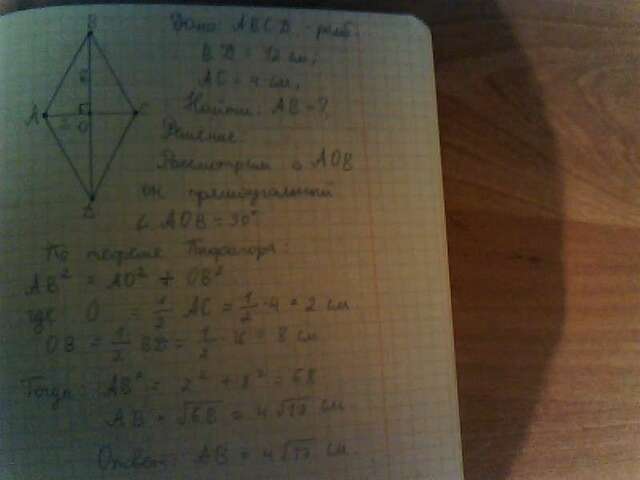 Дано: ABCD - ромб.
BD = 12 см,
AC = 4 см,
Найти: AB - ?
Решение.
Рассмотрим Δ AOB
он прямоугольный
∠ AOB = 90°
По теореме Пифагора:
AB² = AO² + OB²
где O = 1/2 AC = 1/2 · 4 = 2 см
OB = 1/2 BD = 1/2 · 16 = 8 см
Тогда: AB² = 2² + 8² = 68
AB = √68 = 4√17 см
Ответ: AB = 4√17 см.
B
6
A
C
2
O
D